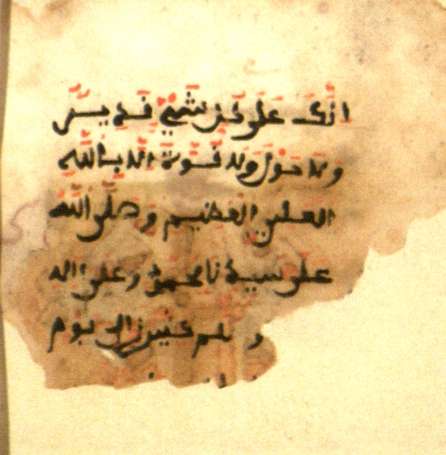 انك على كل شيء قدير
ولا حول ولا قوة الا بالله
العلي العظيم وصلى الله
على سيدنا محمد وعلى اله
وسلم كثيرا الى يوم